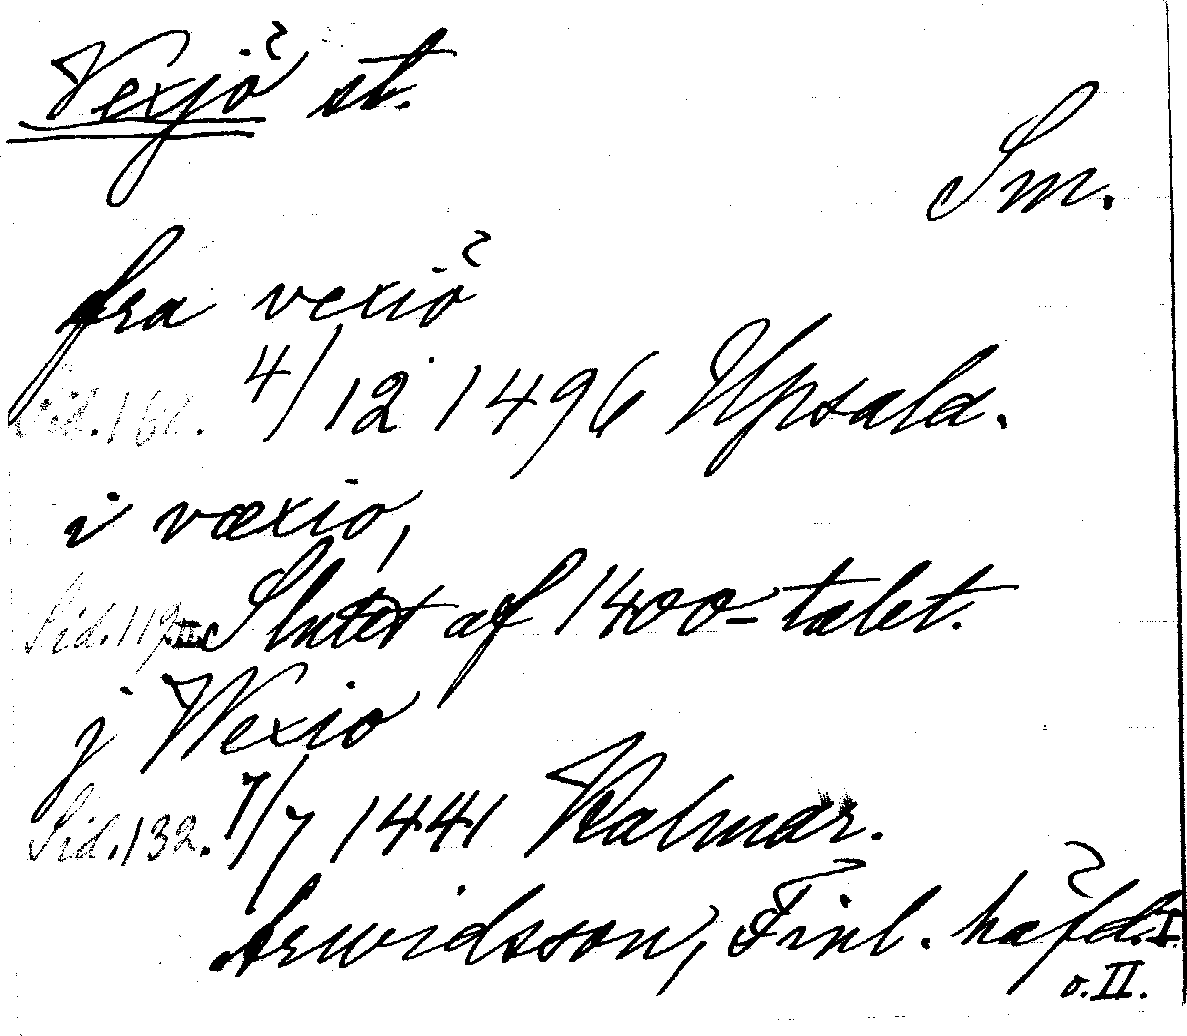 Vexjö st.
Sm.
fra vexiö
Sid. 4/12 1496 Upsala.
i væxio,
Sid. 119. II. Slutet af 1400-talet.
j Wexio
Sid. 132. 7/7 1441 Kalmar.
Arwidsson, Finl. häfd. I.
o. II.